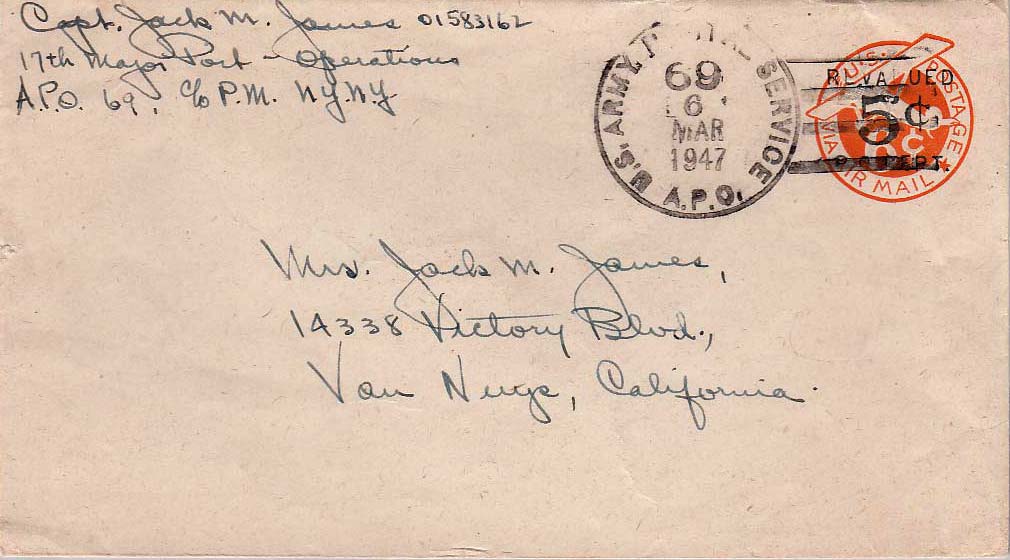 Capt. Jack M. James 01583162
17th Major Port - Operations
A.P.O. 69, c/o P.M. N.Y. N.Y.
U.S. ARMY POSTAL SERVICE
69
6
MAR
1947
A.P.O.
U.S. POSTAGE
REVALUED
5¢
P.O. DEPT.
VIA AIR MAIL
Mrs. Jack M. James,
14338 Victory Blvd.,
Van Nuys, California.